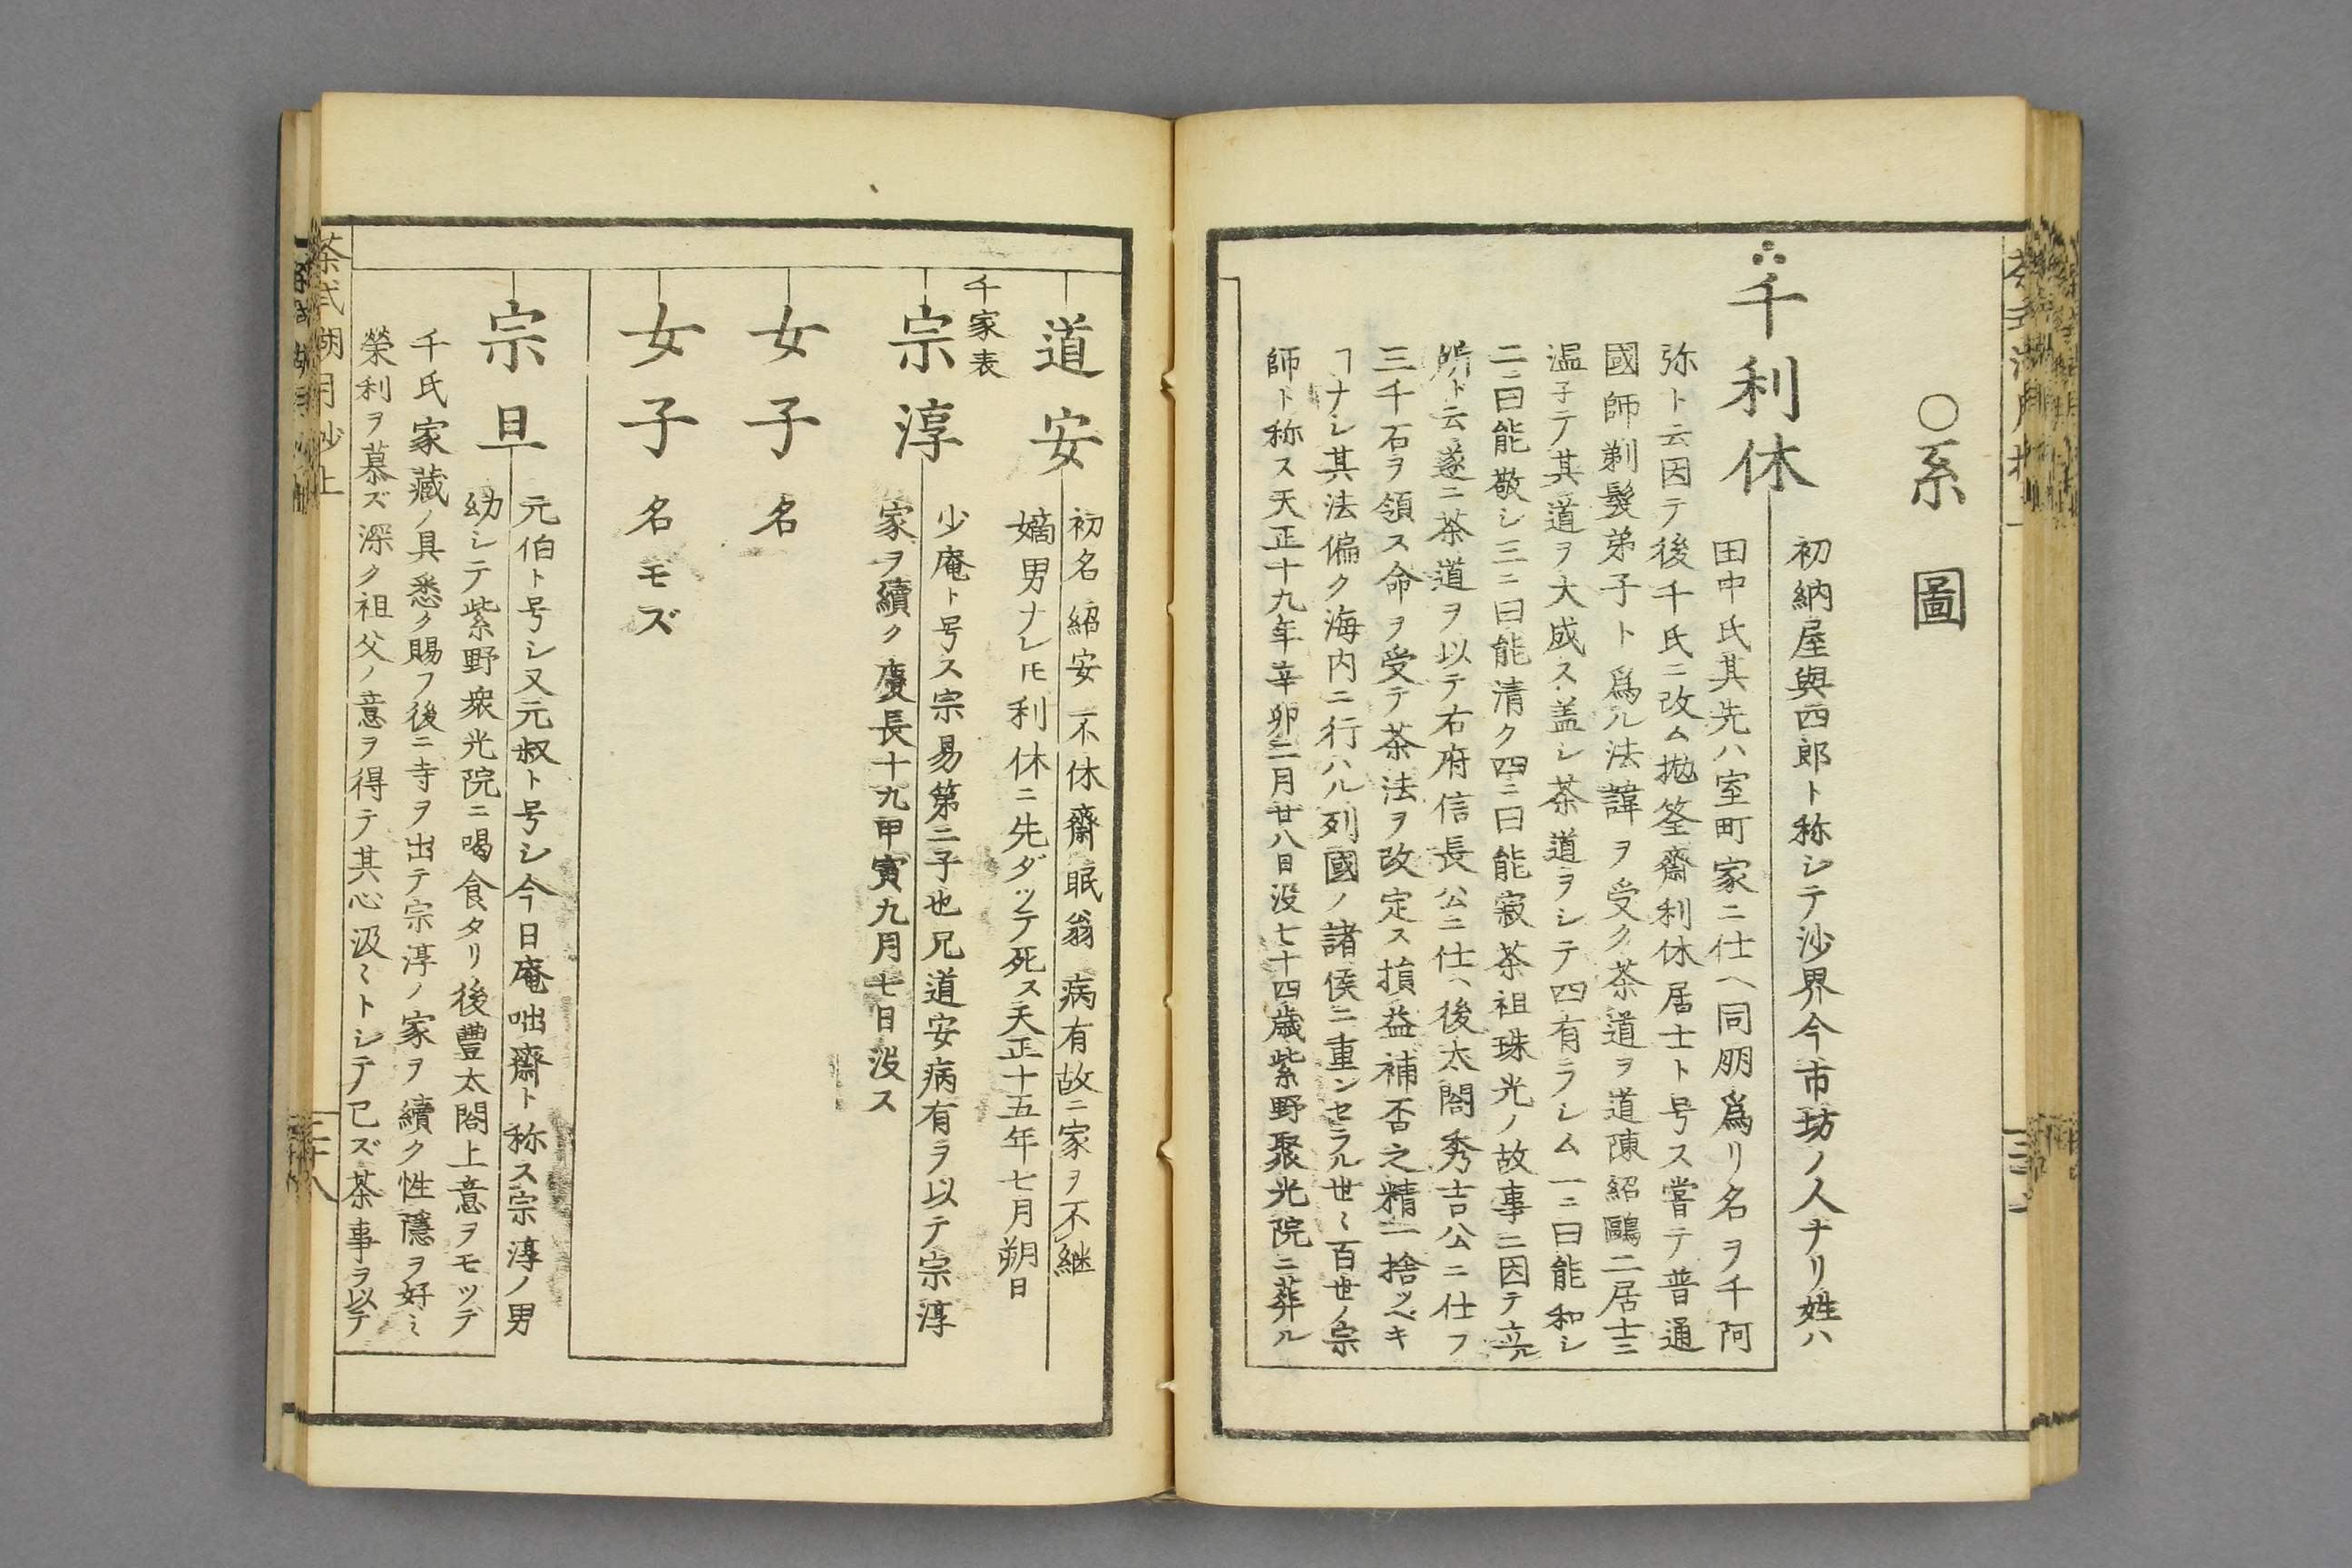 ○系圖
千利休
初納屋與四郎ト称シテ沙界今市坊ノ人ナリ姓ハ
田中氏其先ハ室町家ニ仕ヘ同朋爲リ名ヲ千阿
弥ト云因テ後千氏ニ改ム拋筌齋利休居士ト号ス嘗テ普通
國師剃髮弟子ト爲ル法諱ヲ受ク茶道ヲ道陳紹鷗二居士ニ
温子テ其道ヲ大成ス盖シ茶道ヲシテ四有ラシム一ニ曰能和シ
二ニ曰能敬シ三ニ曰能清ク四ニ曰能寂茶祖珠光ノ故事ニ因テ立ル
所ト云遂ニ茶道ヲ以テ右府信長公ニ仕ヘ後太閤秀吉公ニ仕フ
三千石ヲ領ス命ヲ受テ茶法ヲ改定ス損益補否之精一捨ツベキ
ヿナシ其法偏ク海内ニ行ハル列國ノ諸侯ニ重ンセラル世〻百世ノ宗
師ト称ス天正十九年辛卯二月廿八日没七十四歳紫野聚光院ニ葬ル
道安
初名紹安不休齋眠翁病有故ニ家ヲ不継
嫡男ナレ𪜈利休ニ先ダッテ死ス天正十五年七月朔日
千家表
宗淳
少庵ト号ス宗易第二子也兄道安病有ヲ以テ宗淳
家ヲ續ク慶長十九甲寅九月七日没ス
女子
名
女子
名モズ
宗旦
元伯ト号シ又元叔ト号シ今日庵咄齋ト称ス宗淳ノ男
幼シテ紫野衆光院ニ喝食タリ後豐太閤上意ヲモッテ
千氏家藏ノ具悉ク賜フ後ニ寺ヲ出テ宗淳ノ家ヲ續ク性隱ヲ好ミ
榮利ヲ慕ズ深ク祖父ノ意ヲ得テ其心汲〻トシテ已ズ茶事ヲ以テ
茶式湖月抄上